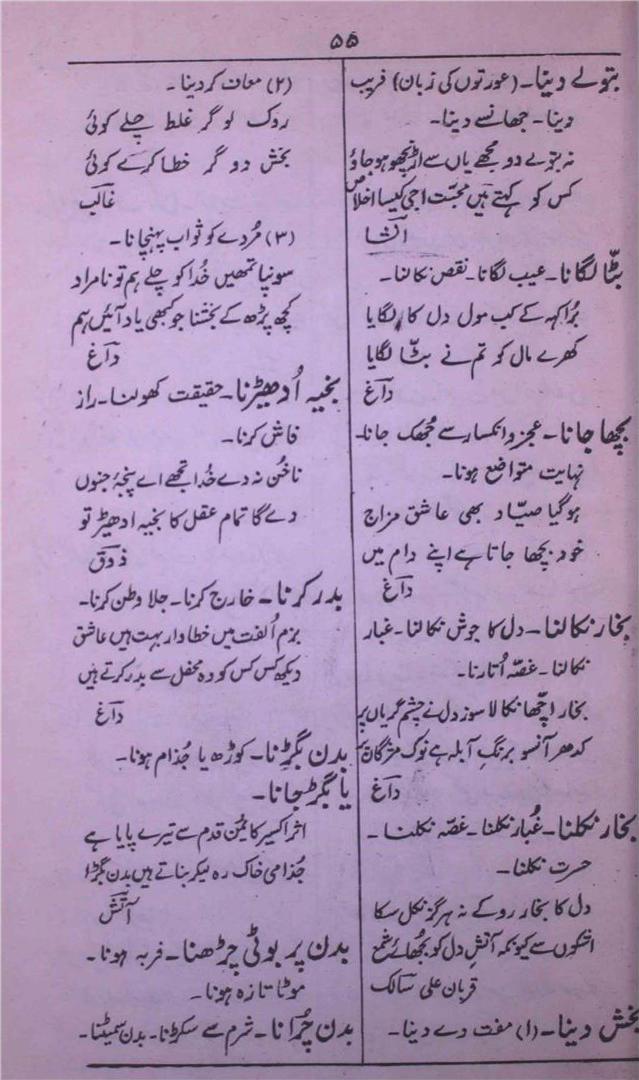 ۵۵
بتولے دینا۔ (عورتوں کی زبان) فریب
دینا۔ جھانسے دینا۔
نہ بتولے دو مجھے یاں سے اڑنچھو ہو جاؤ
کس کو کہتے ہیں محبت اجی کیسا اخلاص
انشا
بٹّا لگانا۔ عیب لگانا۔ نقص نکالنا۔
بُرا کہہ کے کب مول دل کا لگایا
کھرے مال کو تم نے بٹّا لگایا
داغ
بچھا جانا۔ عجز و انکسار سے جُھک جانا۔
نہایت متواضع ہونا۔
ہو گیا صیّاد بھی عاشق مزاج
خود بچھا جاتا ہے اپنے دام میں
داغ
بخار نکالنا۔ دل کا جوش نکالنا۔ غبار
نکالنا۔ غصّہ اُتارنا۔
بخار اچّھا نکالا سوز دل نے چشم گریاں پر
کدھر آنسو برنگِ آبلہ ہے نوک مژگاں پر
داغ
بخار نکلنا۔ غُبار نکلنا۔ غصّہ نکلنا۔
حسرت نکلنا۔
دل کا بخار روکے نہ ہرگز نکل سکا
اشکوں سے کیونکہ آتش دل کو بجھائے شمع
قربان علی سالک
بخش دینا۔ (۱) مفت دے دینا۔
(۲) معاف کر دینا۔
روک لو گر غلط چلے کوئی
بخش دو گر خطا کرے کوئی
غالب
(۳) مُردے کو ثواب پہنچانا۔
سونپا تمھیں خُدا کو چلے ہم تو نامراد
کچھ پڑھ کے بخشنا جو کبھی یاد آئیں ہم
داغ
بخیہ اُدھیڑنا۔ حقیقت کھولنا۔ راز
فاش کرنا۔
ناخُن نہ دے خُدا تجھے اے پنجۂ جنوں
دے گا تمام عقل کا بخیہ ادھیڑ تو
ذوق
بدر کرنا۔ خارج کرنا۔ جلا وطن کرنا۔
بزم اُلفت میں خطاوار بہت ہیں عاشق
دیکھ کس کس کو وہ محفل سے بدر کرتے ہیں
داغ
بدن بگڑنا۔ کوڑھ یا جُذام ہونا۔
یا بگڑ جانا۔
اثر اکسیر کا یُمن قدم سے تیرے پایا ہے
جُذامی خاک رہ لیکر بناتے ہیں بدن بگڑا
آتش
بدن پر بوٹی چڑھنا۔ فربہ ہونا۔
موٹا تازہ ہونا۔
بدن چُرانا۔ شرم سے سکڑنا۔ بدن سمیٹنا۔